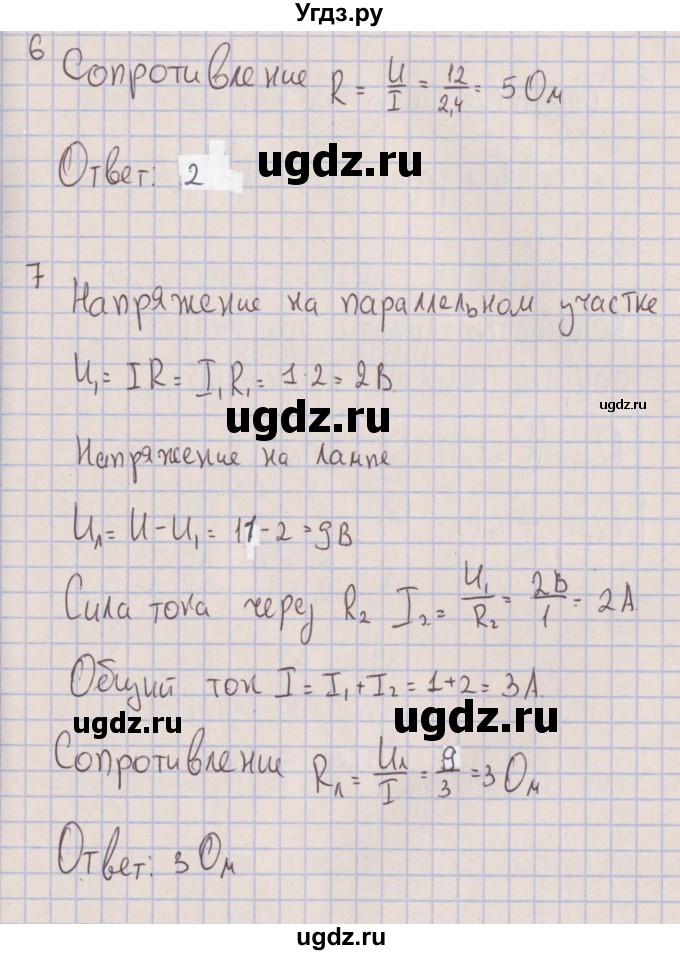 Угдз.ру
6
Сопротивление R = U/I = 12/2,4 = 5 Ом
Ответ: 2
ugdz.ru
7
Напряжение на параллельном участке
U₁ = IR = I₁R₁ = 1·2 = 2В
ugdz.ru
ugdz.ru
Напряжение на лампе
Uл = U − U₁ = 11 − 2 = 9В
Сила тока через R₂ I₂ = U₁/R₂ = 2В/1 = 2А
Общий ток I = I₁ + I₂ = 1+2 = 3А
ugdz.ru
ugdz.ru
Сопротивление Rл = Uл/I = 9/3 = 3 Ом
Ответ: 3 Ом
ugdz.ru